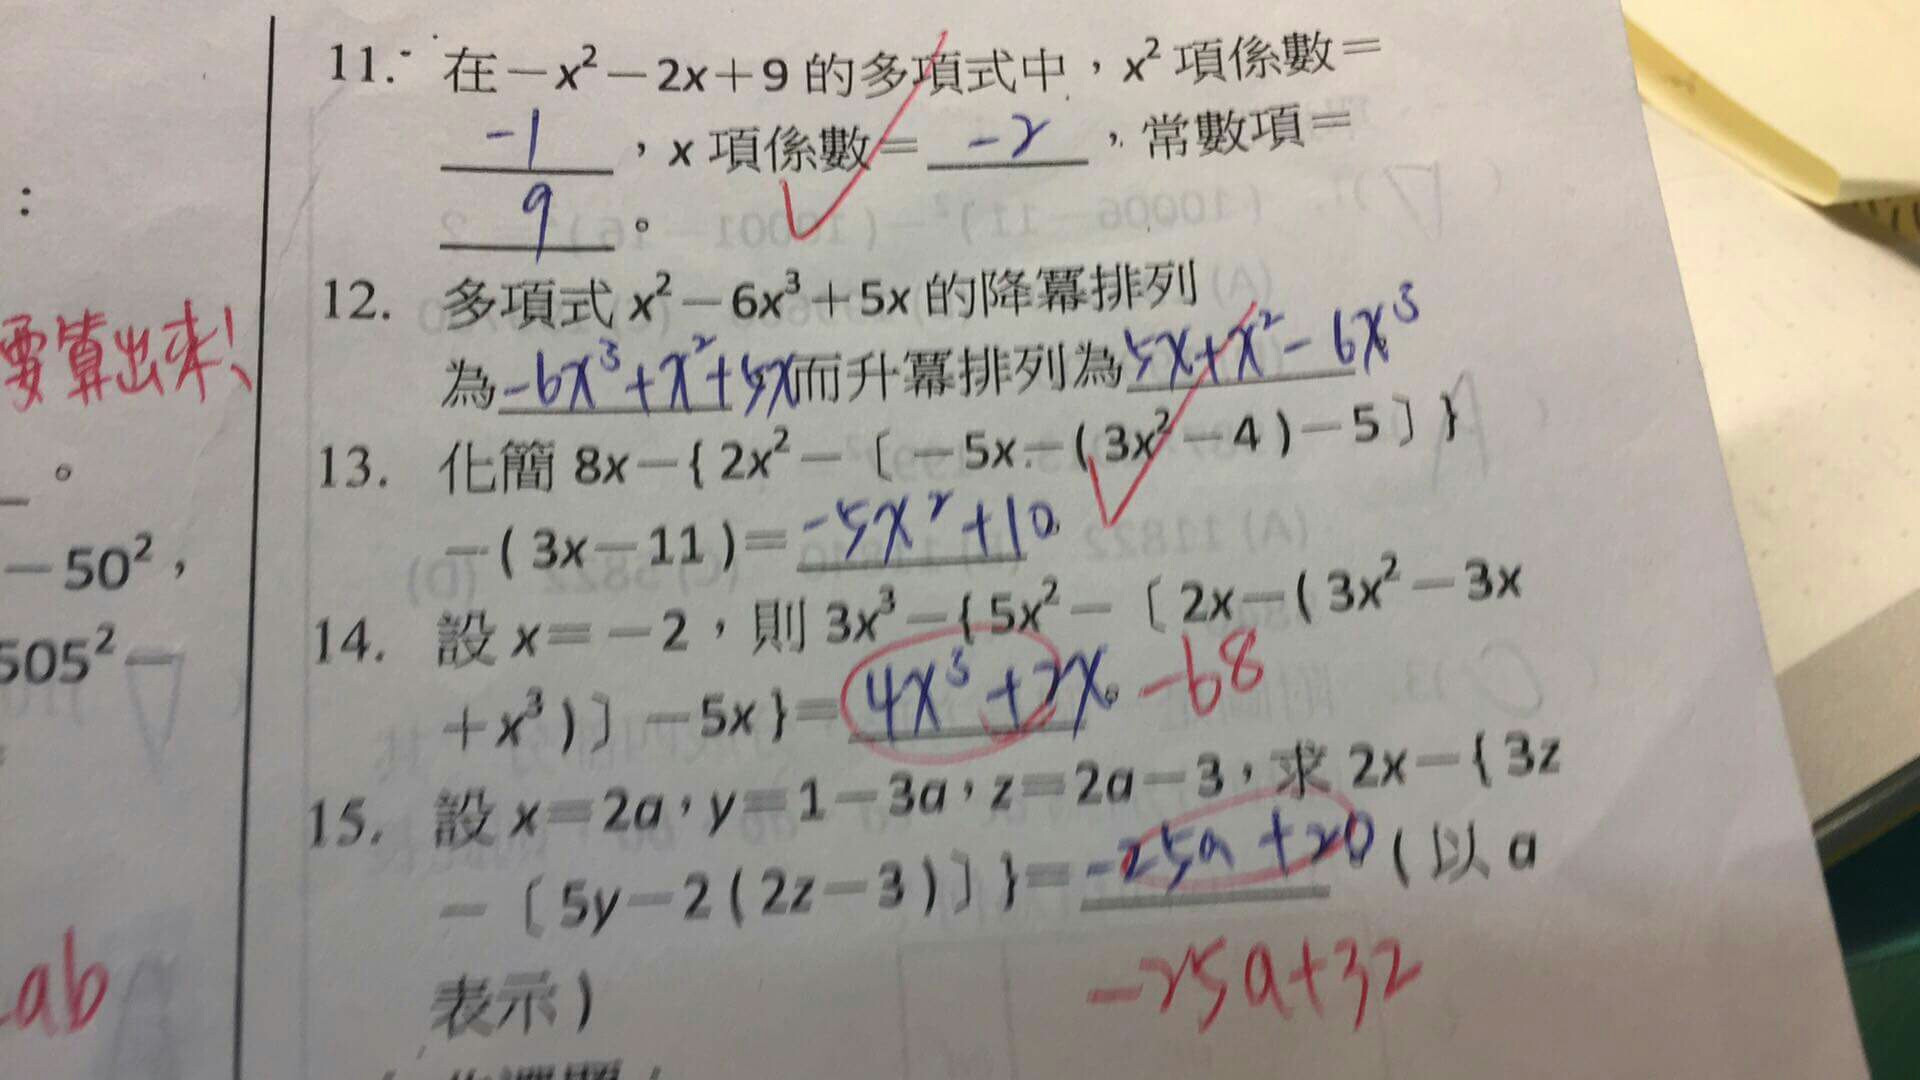 :
要算出來!
。
－50²，
505²－
ab
11. 在－x²－2x＋9 的多項式中，x² 項係數＝
-1 ，x 項係數＝ -2 ，常數項＝
9 。
12. 多項式 x²－6x³＋5x 的降冪排列
為 -6x³+x²+5x 而升冪排列為 5x+x²-6x³
13. 化簡 8x－{2x²－〔－5x－(3x²－4)－5〕}
－(3x－11)＝ -5x²+10
14. 設 x＝－2，則 3x³－{5x²－〔2x－(3x²－3x
＋x³)〕－5x}＝ 4x³+2x。 -68
15. 設 x＝2a，y＝1－3a，z＝2a－3，求 2x－{3z
－〔5y－2(2z－3)〕}＝ -25a+20 (以 a
-25a+32
表示)